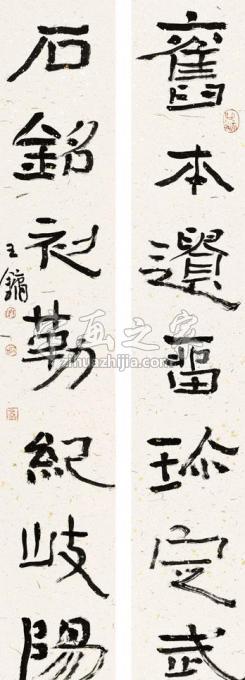 舊本遺畱珍定武
石銘初勒紀岐陽
王鏞
字画之家
zihuazhijia.com